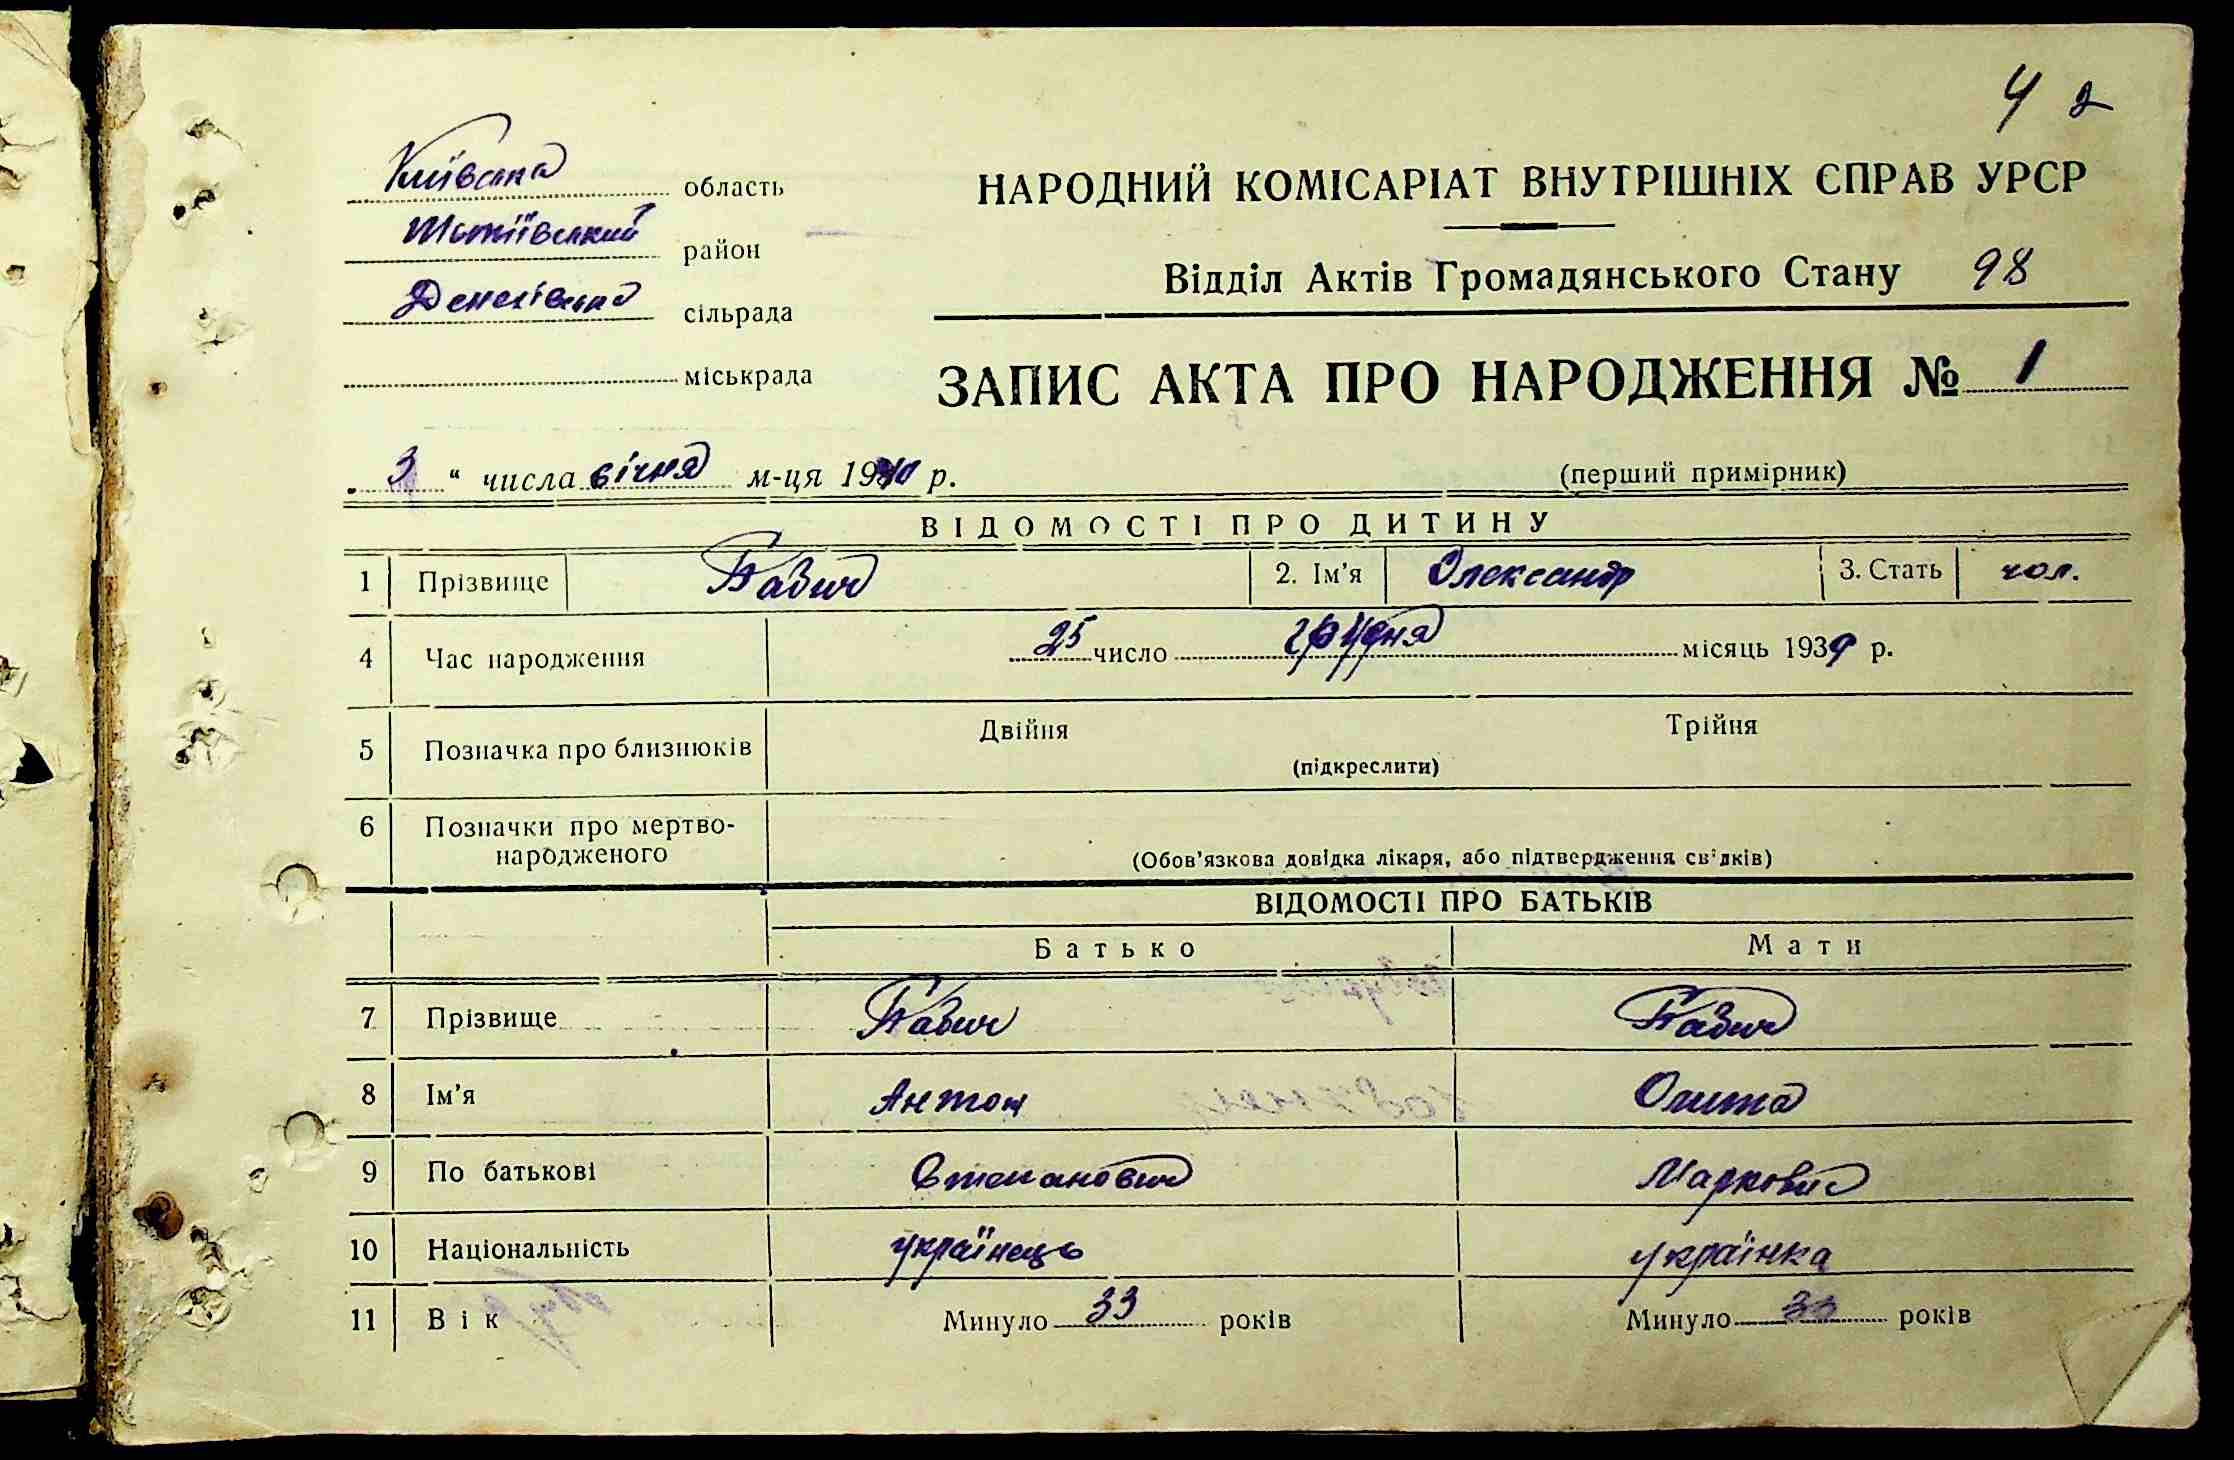 4 2
Київська область
НАРОДНИЙ КОМІСАРІАТ ВНУТРІШНІХ СПРАВ УРСР
район
Відділ Актів Громадянського Стану 98
сільрада
міськрада
ЗАПИС АКТА ПРО НАРОДЖЕННЯ № 1
„ 3 “ числа січня м-ця 1940 р.
(перший примірник)
ВІДОМОСТІ ПРО ДИТИНУ
1 Прізвище 2. Ім’я Олександр 3. Стать чол.
4 Час народження 25 число грудня місяць 1939 р.
5 Позначка про близнюків Двійня Трійня
(підкреслити)
6 Позначки про мертво-
народженого
(Обов’язкова довідка лікаря, або підтвердження свідків)
ВІДОМОСТІ ПРО БАТЬКІВ
Батько Мати
7 Прізвище
8 Ім’я Антон
9 По батькові Степанович
10 Національність українець українка
11 Вік Минуло 33 років Минуло 33 років